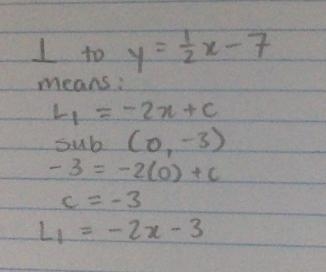 ⊥ to y = ½x - 7
means:
L₁ = -2x + c
sub (0, -3)
-3 = -2(0) + c
c = -3
L₁ = -2x - 3